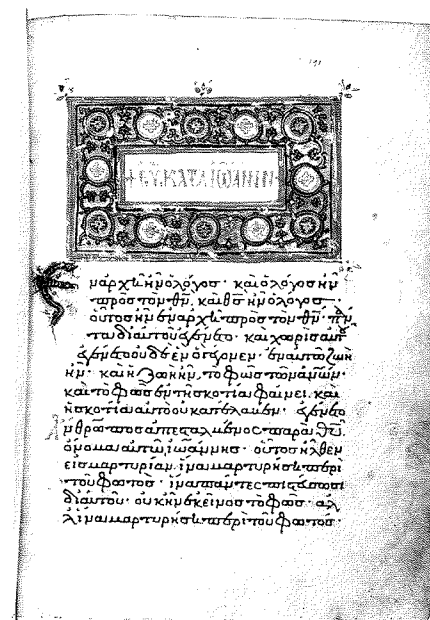 + ΕΥ. ΚΑΤΑ ΙΩΑΝΝΗΝ
ἐν ἀρχῆ ἦν ὁ λόγος· καὶ ὁ λόγος ἦν
πρὸς τὸν θν, καὶ θς ἦν ὁ λόγος
οὗτος ἦν ἐν ἀρχῆ πρὸς τὸν θν· πάν
τα δι αυτοῦ ἐγένετο· καὶ χωρὶς αὐτοῦ
ἐγένετο οὐδὲ ἓν ὃ γέγονεν· ἐν αὐτῶ ζωὴ
ἦν· καὶ ἡ ζωὴ ἦν, τὸ φῶς τῶν ἀνων·
καὶ τὸ φῶς ἐν τῆ σκοτία φαίνει. καὶ
ἡ σκοτία αὐτὸ οὐ κατέλαβεν· ἐγένετο
ἄνθρωπος ἀπεσταλμένος παρὰ θυ.
ὄνομα αὐτῶ ἰωάννης· οὗτος ἦλθεν
εἰς μαρτυρίαν. ἵνα μαρτυρήση περὶ
τοῦ φωτός· ἵνα πάντες πιστεύσωσι
δι αὐτοῦ· οὐκ ἦν ἐκεῖνος τὸ φῶς· ἀλ
λ ἵνα μαρτυρήση περὶ τοῦ φωτός·